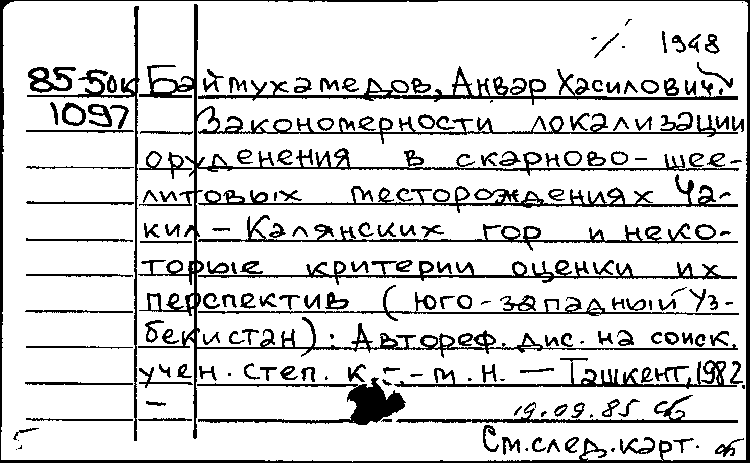 -/. 1948
85-5ок Баймухамедов, Анвар Хасилович.
1097 Закономерности локализации
оруденения в скарново-шее-
литовых месторождениях Ча-
кил-Калянских гор и неко-
торые критерии оценки их
перспектив (юго-западный Уз-
бекистан): Автореф. дис. на соиск.
учен. степ. к.г.-м.н. — Ташкент, 1982.
— 19.09.85 сб
См.след.карт.